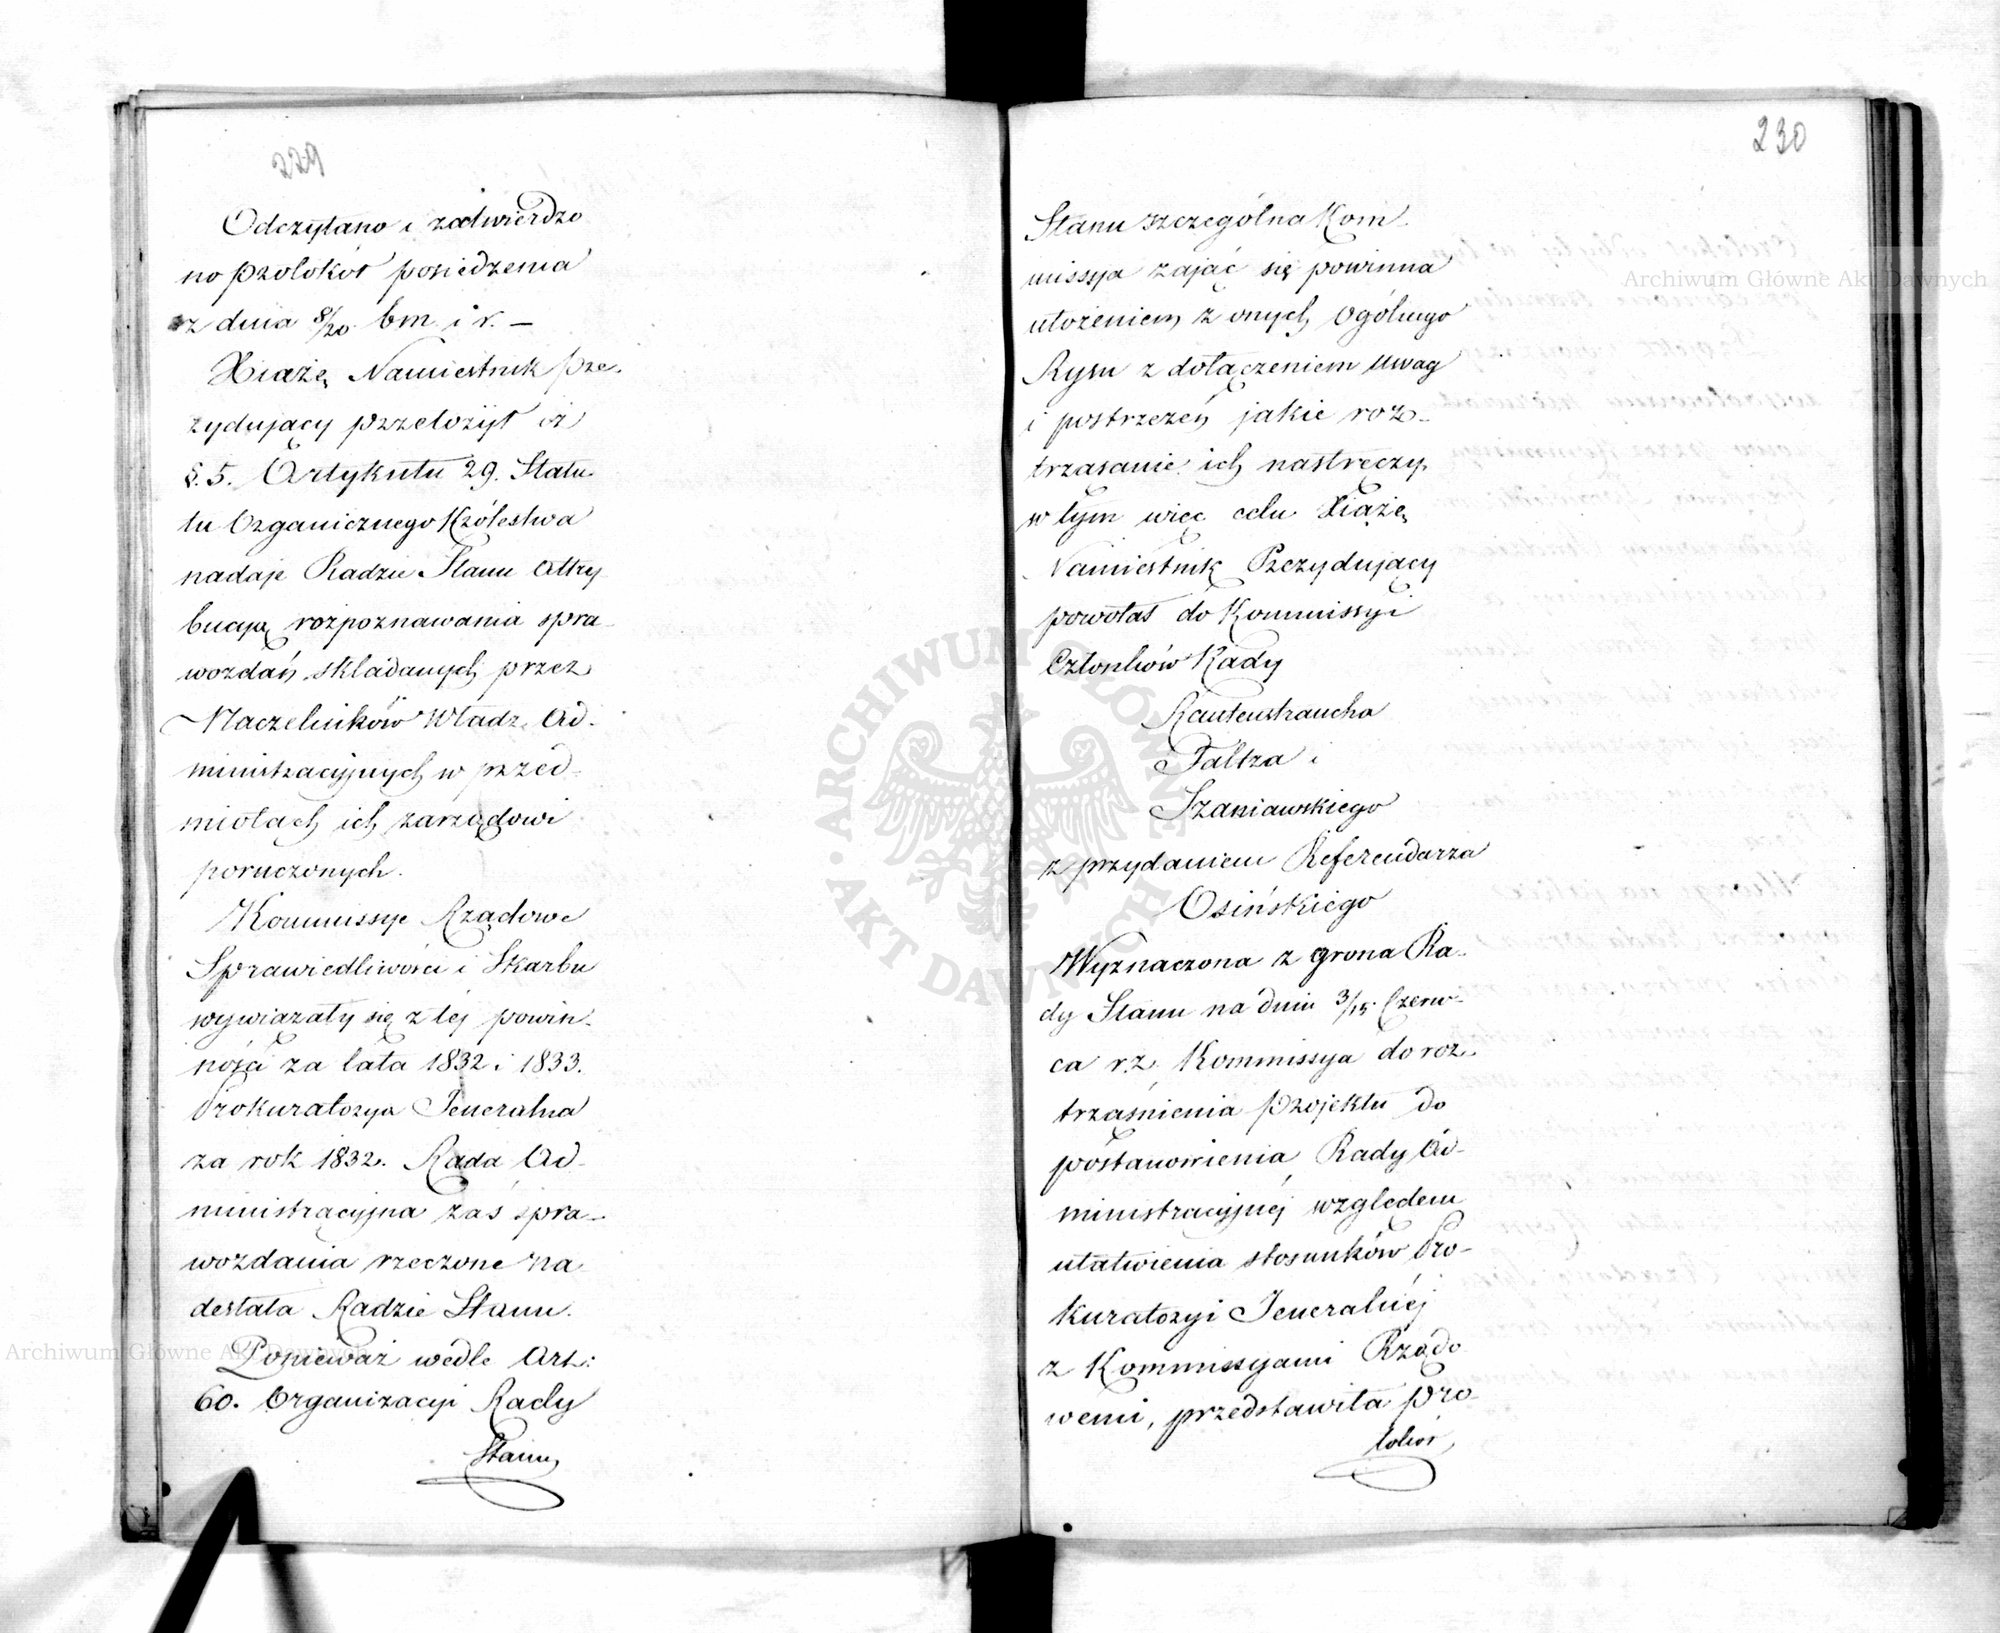 229
Odczytano i zatwierdzo
no Protokół posiedzenia
z dnia 8/20. bm. i r. –
Xiążę Namiestnik Pre-
zydujący przełożył iż
§. 5. Artykułu 29. Statu
tu Organicznego Królestwa
nadaje Radzie Stanu Attry
bucyą rozpoznawania spra-
wozdań składanych przez
Naczelników Władz Ad-
ministracyjnych w przed-
miotach ich zarządowi
poruczonych.
Kommissye Rządowe
Sprawiedliwości i Skarbu
wywiązały się z tej powin-
ności za lata 1832 i 1833.
Prokuratorya Jeneralna
za rok 1832. Rada Ad-
ministracyjna zaś spra-
wozdania rzeczone na
desłała Radzie Stanu.
Ponieważ wedle Art:
60. Organizacyi Rady
Stanu
230
Stanu szczególna Kom-
missya zająć się powinna
ułożeniem z onych Ogólnego
Rysu z dołączeniem Uwag
i postrzeżeń jakie roz-
trząsanie ich nastręczy,
w tym więc celu Xiążę
Namiestnik Prezydujący
powołał do Kommissyi
Członków Rady
Rautenstraucha
Faltza i
Szaniawskiego
z przydaniem Referendarza
Osińskiego
Wyznaczona z grona Ra-
dy Stanu na dniu 3/15 Czerw-
ca r.z. Kommissya do roz-
trząśnienia Projektu do
postanowienia Rady Ad-
ministracyjnéj względem
ułatwienia stosunków Pro-
kuratoryi Jeneralnéj
z Kommissyami Rządo
wemi, przedstawiła Pro-
tokół,
Archiwum Główne Akt Dawnych
Archiwum Główne Akt Dawnych
ARCHIWUM GŁÓWNE • AKT DAWNYCH •